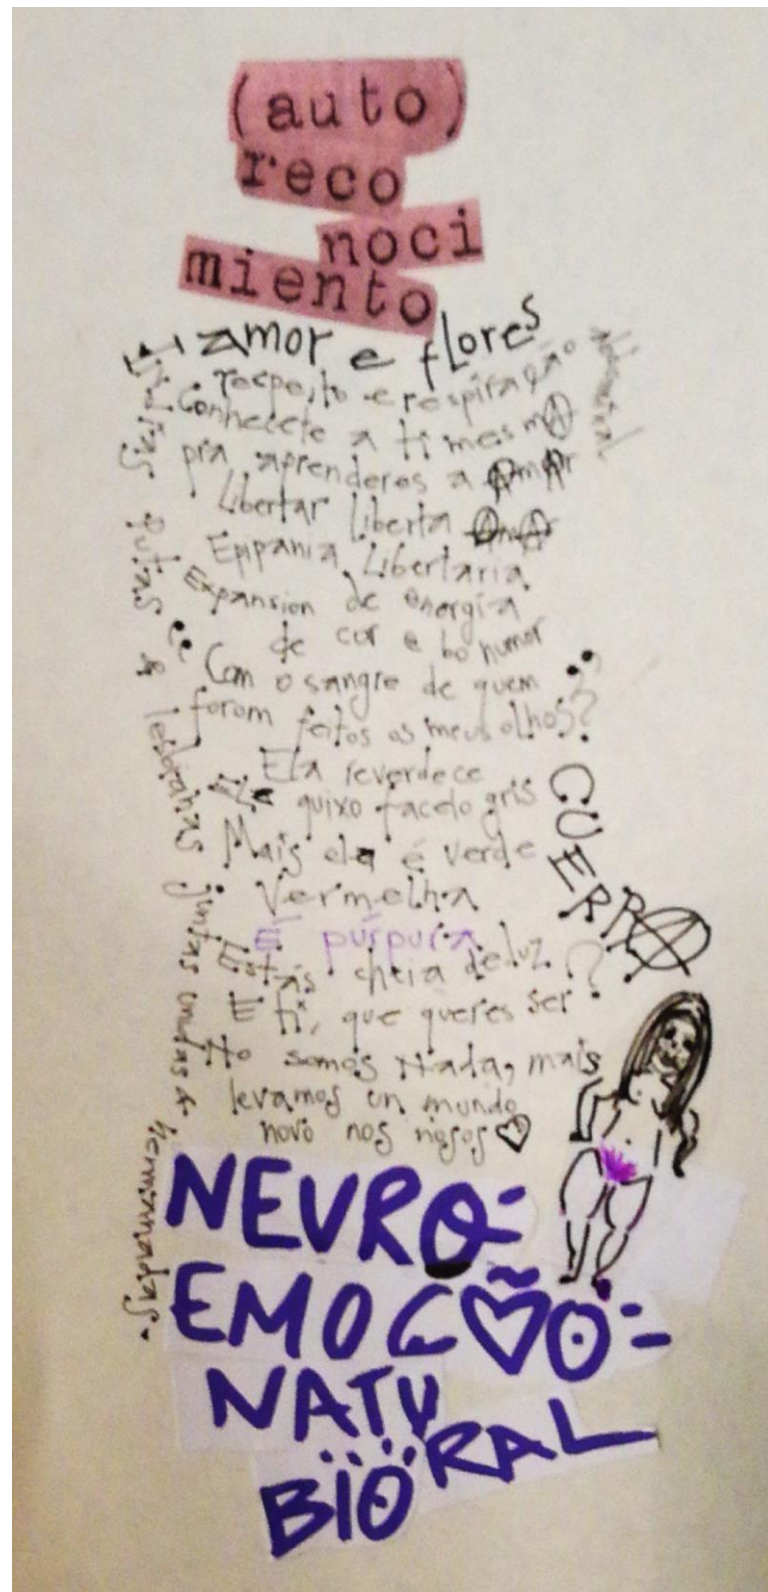 (auto)
reco
noci
miento
amor e flores
respeito e respiração
Conhecete a ti mesmA
pra aprenderes a AmAr
Libertar liberta AmAr
Epipania Libertaria
Expansion de energía
de cor e bo humor
Com o sangre de quem
forom feitos os meus olhos?
Ela reverdece
quixo facelo gris
Mais ela é verde
Vermelha
É púrpura
Estás cheia de luz
E ti, que queres ser?
No somos Nada, mais
levamos un mundo
novo nos nosos
putas & lesbianas juntas unidas & hermanadas.
GUERRA
NEURO-
EMOCÃO-
NATU
RAL
BIO